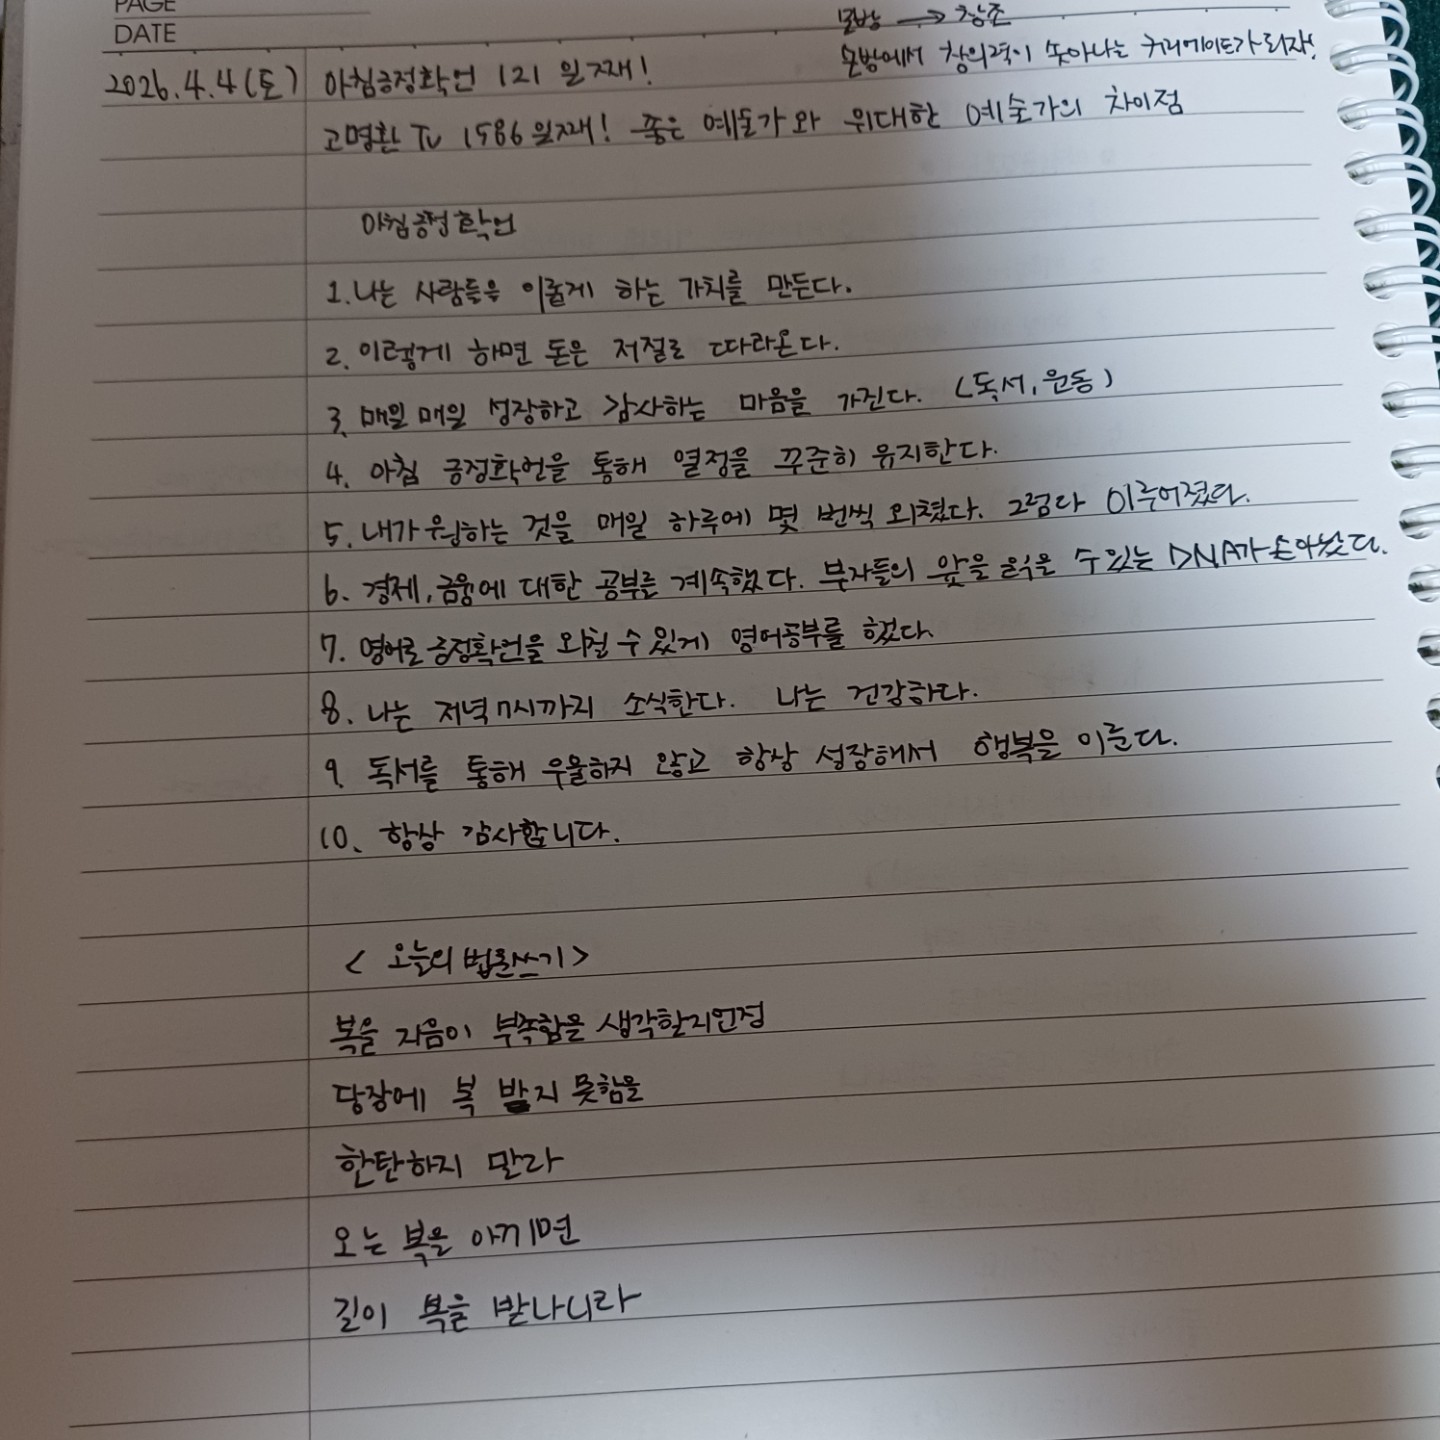 PAGE
DATE
모방 → 창조
모방에서 창의력이 솟아나는 커리에이트가 되자!
2026.4.4(토) 아침긍정확언 121일째!
고명환 TV 1586일째! 좋은 예술가와 위대한 예술가의 차이점
아침긍정확언
1. 나는 사람들을 이롭게 하는 가치를 만든다.
2. 이렇게 하면 돈은 저절로 따라온다.
3. 매일매일 성장하고 감사하는 마음을 가진다. (독서, 운동)
4. 아침 긍정확언을 통해 열정을 꾸준히 유지한다.
5. 내가 원하는 것을 매일 하루에 몇 번씩 외쳤다. 그럼다 이루어졌다.
6. 경제, 금융에 대한 공부를 계속했다. 부자들의 앞을 읽을 수 있는 DNA가 솟아났다.
7. 영어로 긍정확언을 외칠 수 있게 영어공부를 했다.
8. 나는 저녁 7시까지 소식한다. 나는 건강하다.
9. 독서를 통해 우울하지 않고 항상 성장해서 행복을 이룬다.
10. 항상 감사합니다.
< 오늘의 법문쓰기 >
복을 지음이 부족함을 생각할지언정
당장에 복 받지 못함을
한탄하지 말라
오는 복을 아끼면
길이 복을 받나니라